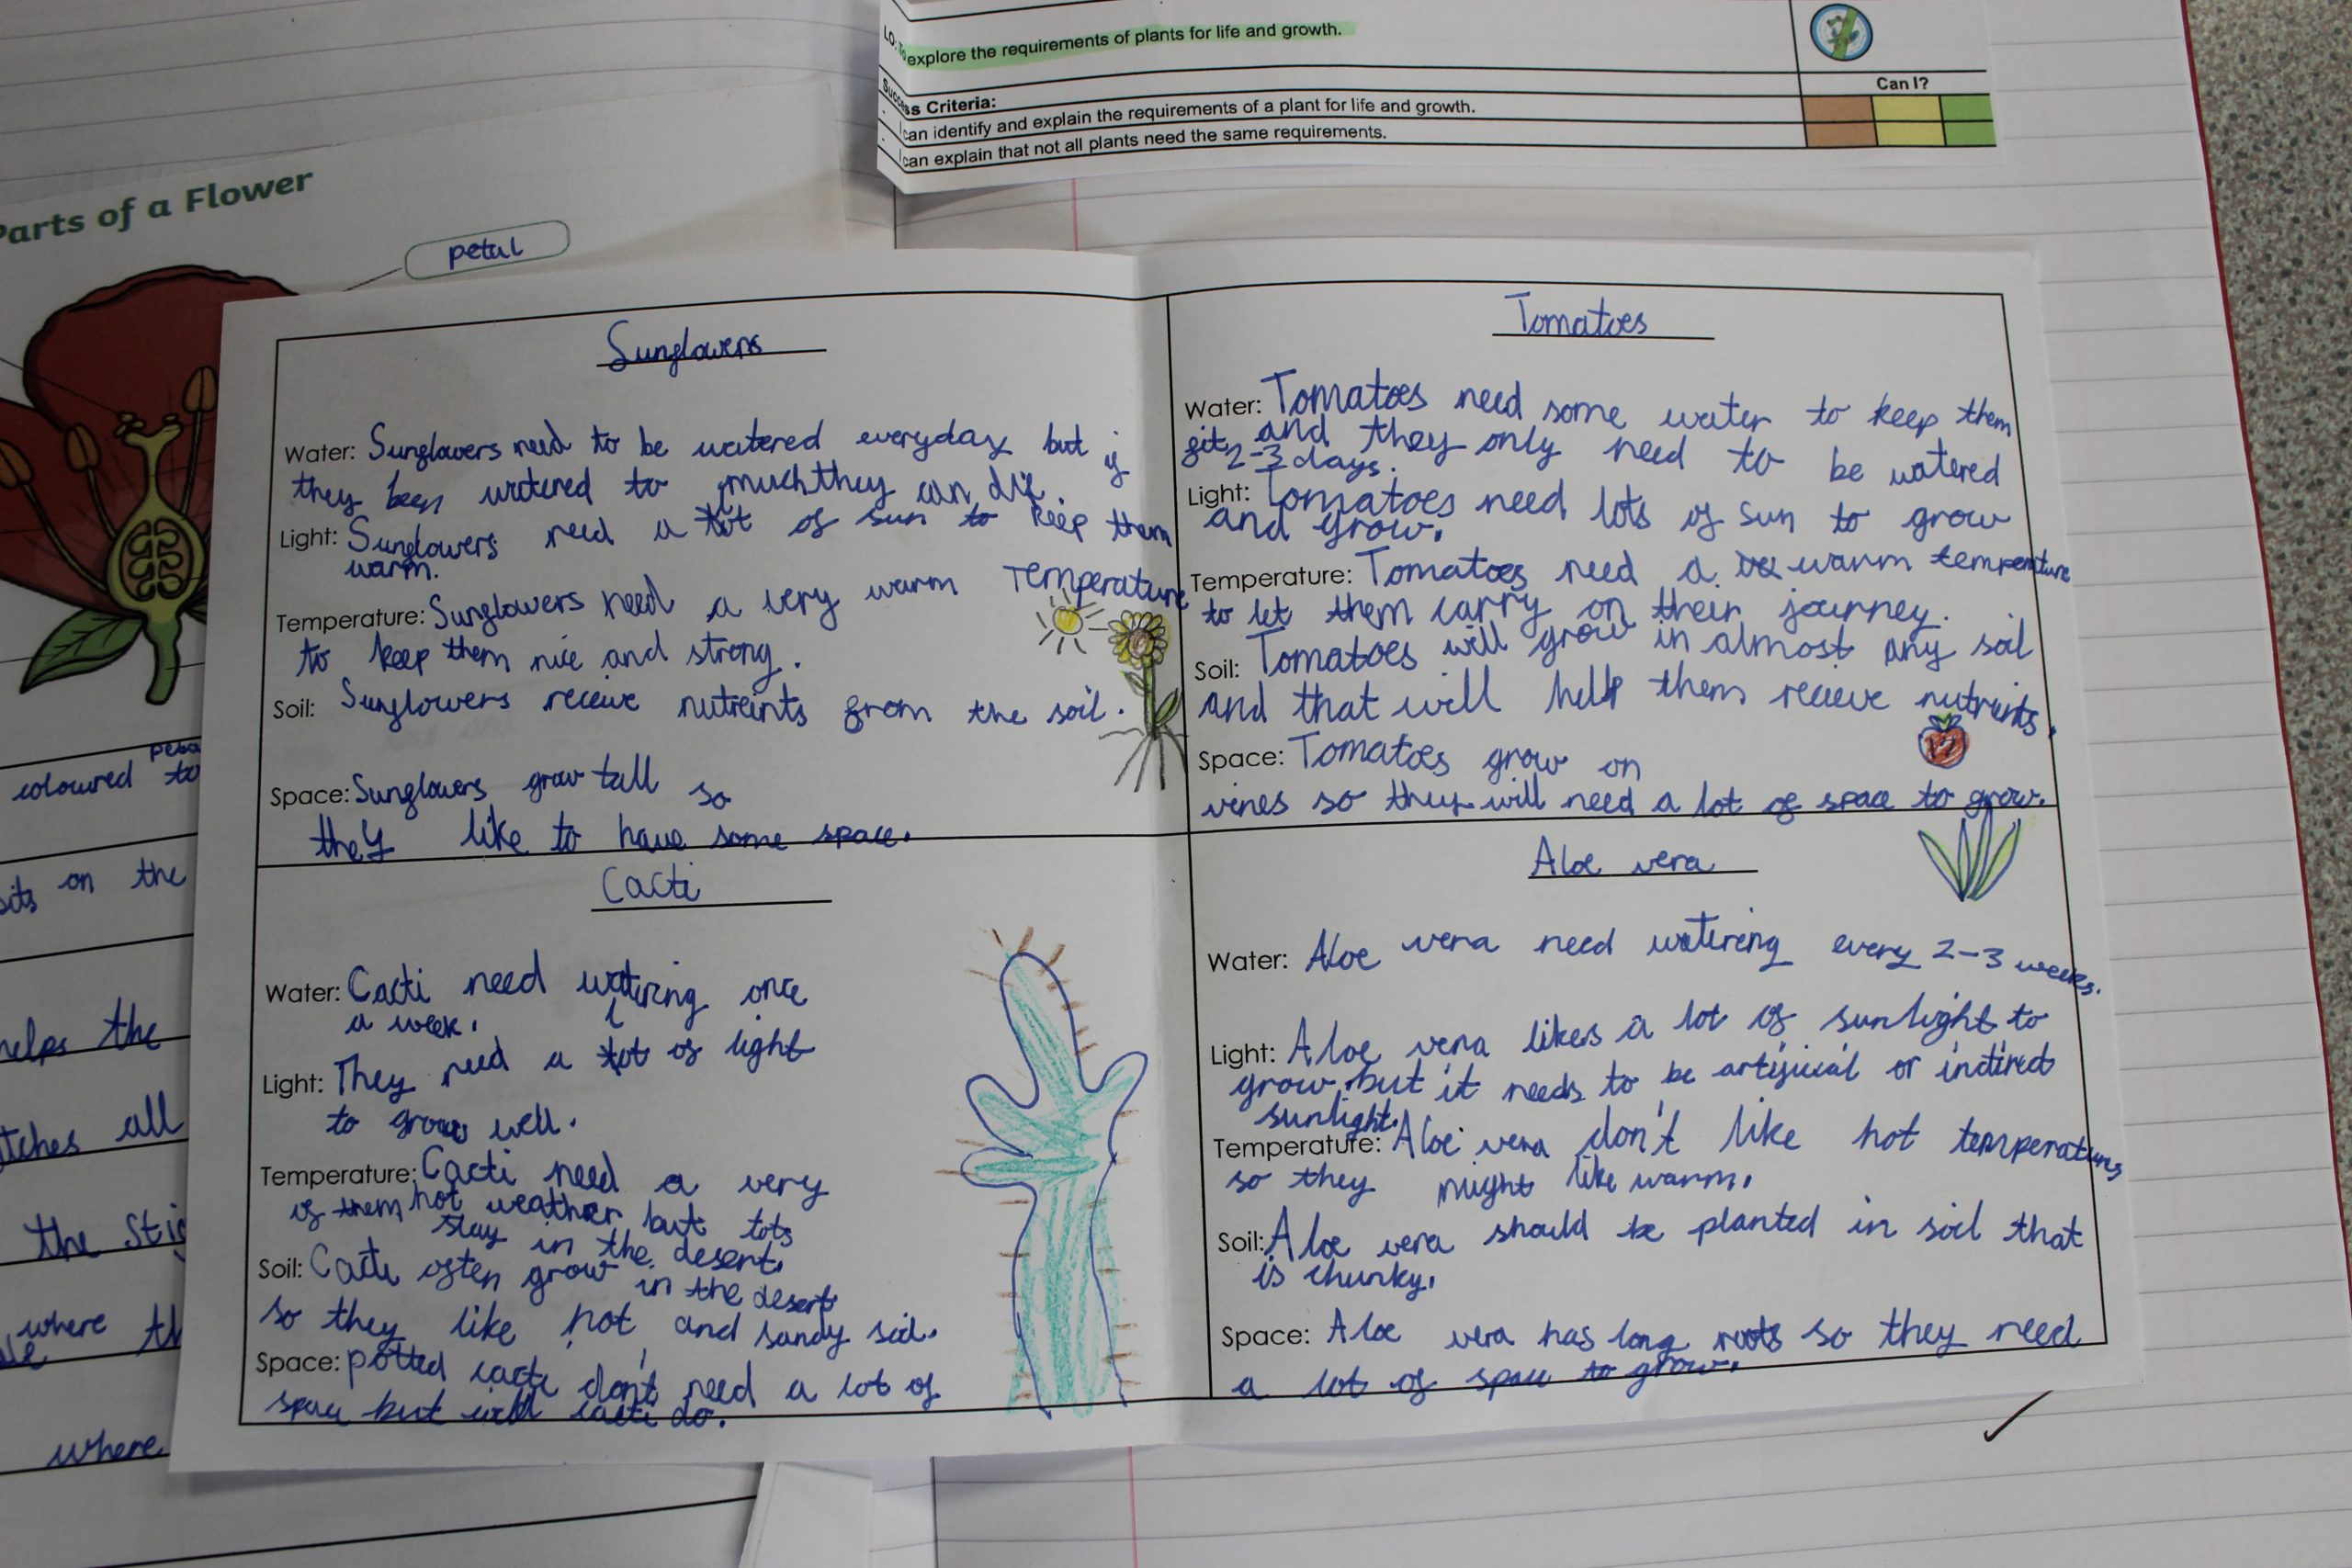 LO: To explore the requirements of plants for life and growth.
Success Criteria:
Can I?
- I can identify and explain the requirements of a plant for life and growth.
- I can explain that not all plants need the same requirements.
Parts of a Flower
petal
coloured
to
sits on the
helps the
all
the
where
where
Sunflowers
Water: Sunflowers need to be watered everyday but if
they been watered to much they can die.
Light: Sunflowers need a lot of sun to keep them
warm.
Temperature: Sunflowers need a very warm Temperature
to keep them nice and strong.
Soil: Sunflowers receive nutreints from the soil.
Space: Sunflowers grow tall so
they like to have some space.
Tomatoes
Water: Tomatoes need some water to keep them
fit, and they only need to be watered
2-3 days.
Light: Tomatoes need lots of sun to grow
and grow.
Temperature: Tomatoes need a warm temperature
to let them carry on their journey.
Soil: Tomatoes will grow in almost any soil
and that will help them recieve nutrients.
Space: Tomatoes grow on
vines so they will need a lot of space to grow.
Cacti
Water: Cacti need watering once
a week.
Light: They need a lot of light
to grow well.
Temperature: Cacti need a very
hot weather but lots
of them stay in the desert.
Soil: Cacti often grow in the desert
so they like hot and sandy soil.
Space: potted cacti don't need a lot of
space but wild cacti do.
Aloe vera
Water: Aloe vera need watering every 2-3 weeks.
Light: Aloe vera likes a lot of sunlight to
grow but it needs to be artificial or indirect
sunlight.
Temperature: Aloe vera don't like hot temperatures
so they might like warm.
Soil: Aloe vera should be planted in soil that
is chunky.
Space: Aloe vera has long roots so they need
a lot of space to grow.